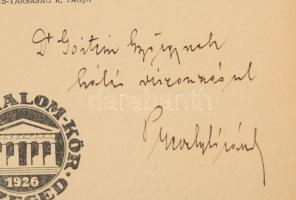 S-TÁRSASÁG R. TAGJA
Dr Goitein Györgynek
hálás viszonzásul
ALOM-KÖR
1926
darabanth